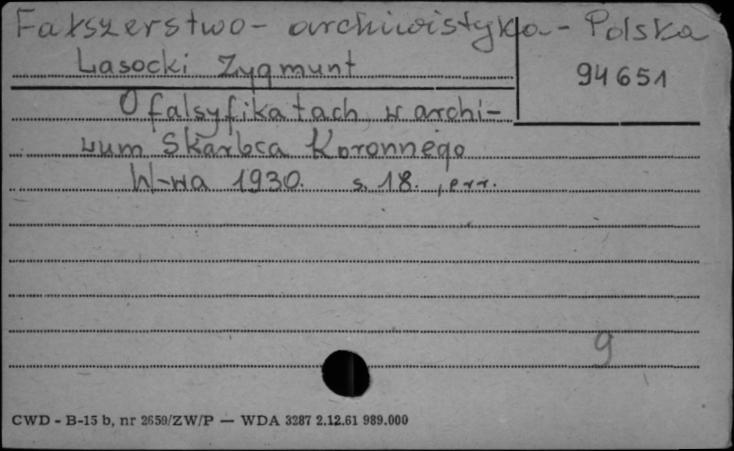 Fałszerstwo - archiwistyka - Polska
Lasocki Zygmunt
94651
O falsyfikatach w archi-
wum Skarbca Koronnego
W-wa 1930. s. 18.
9
CWD - B-15 b, nr 2659/ZW/P — WDA 3287 2.12.61 989.000